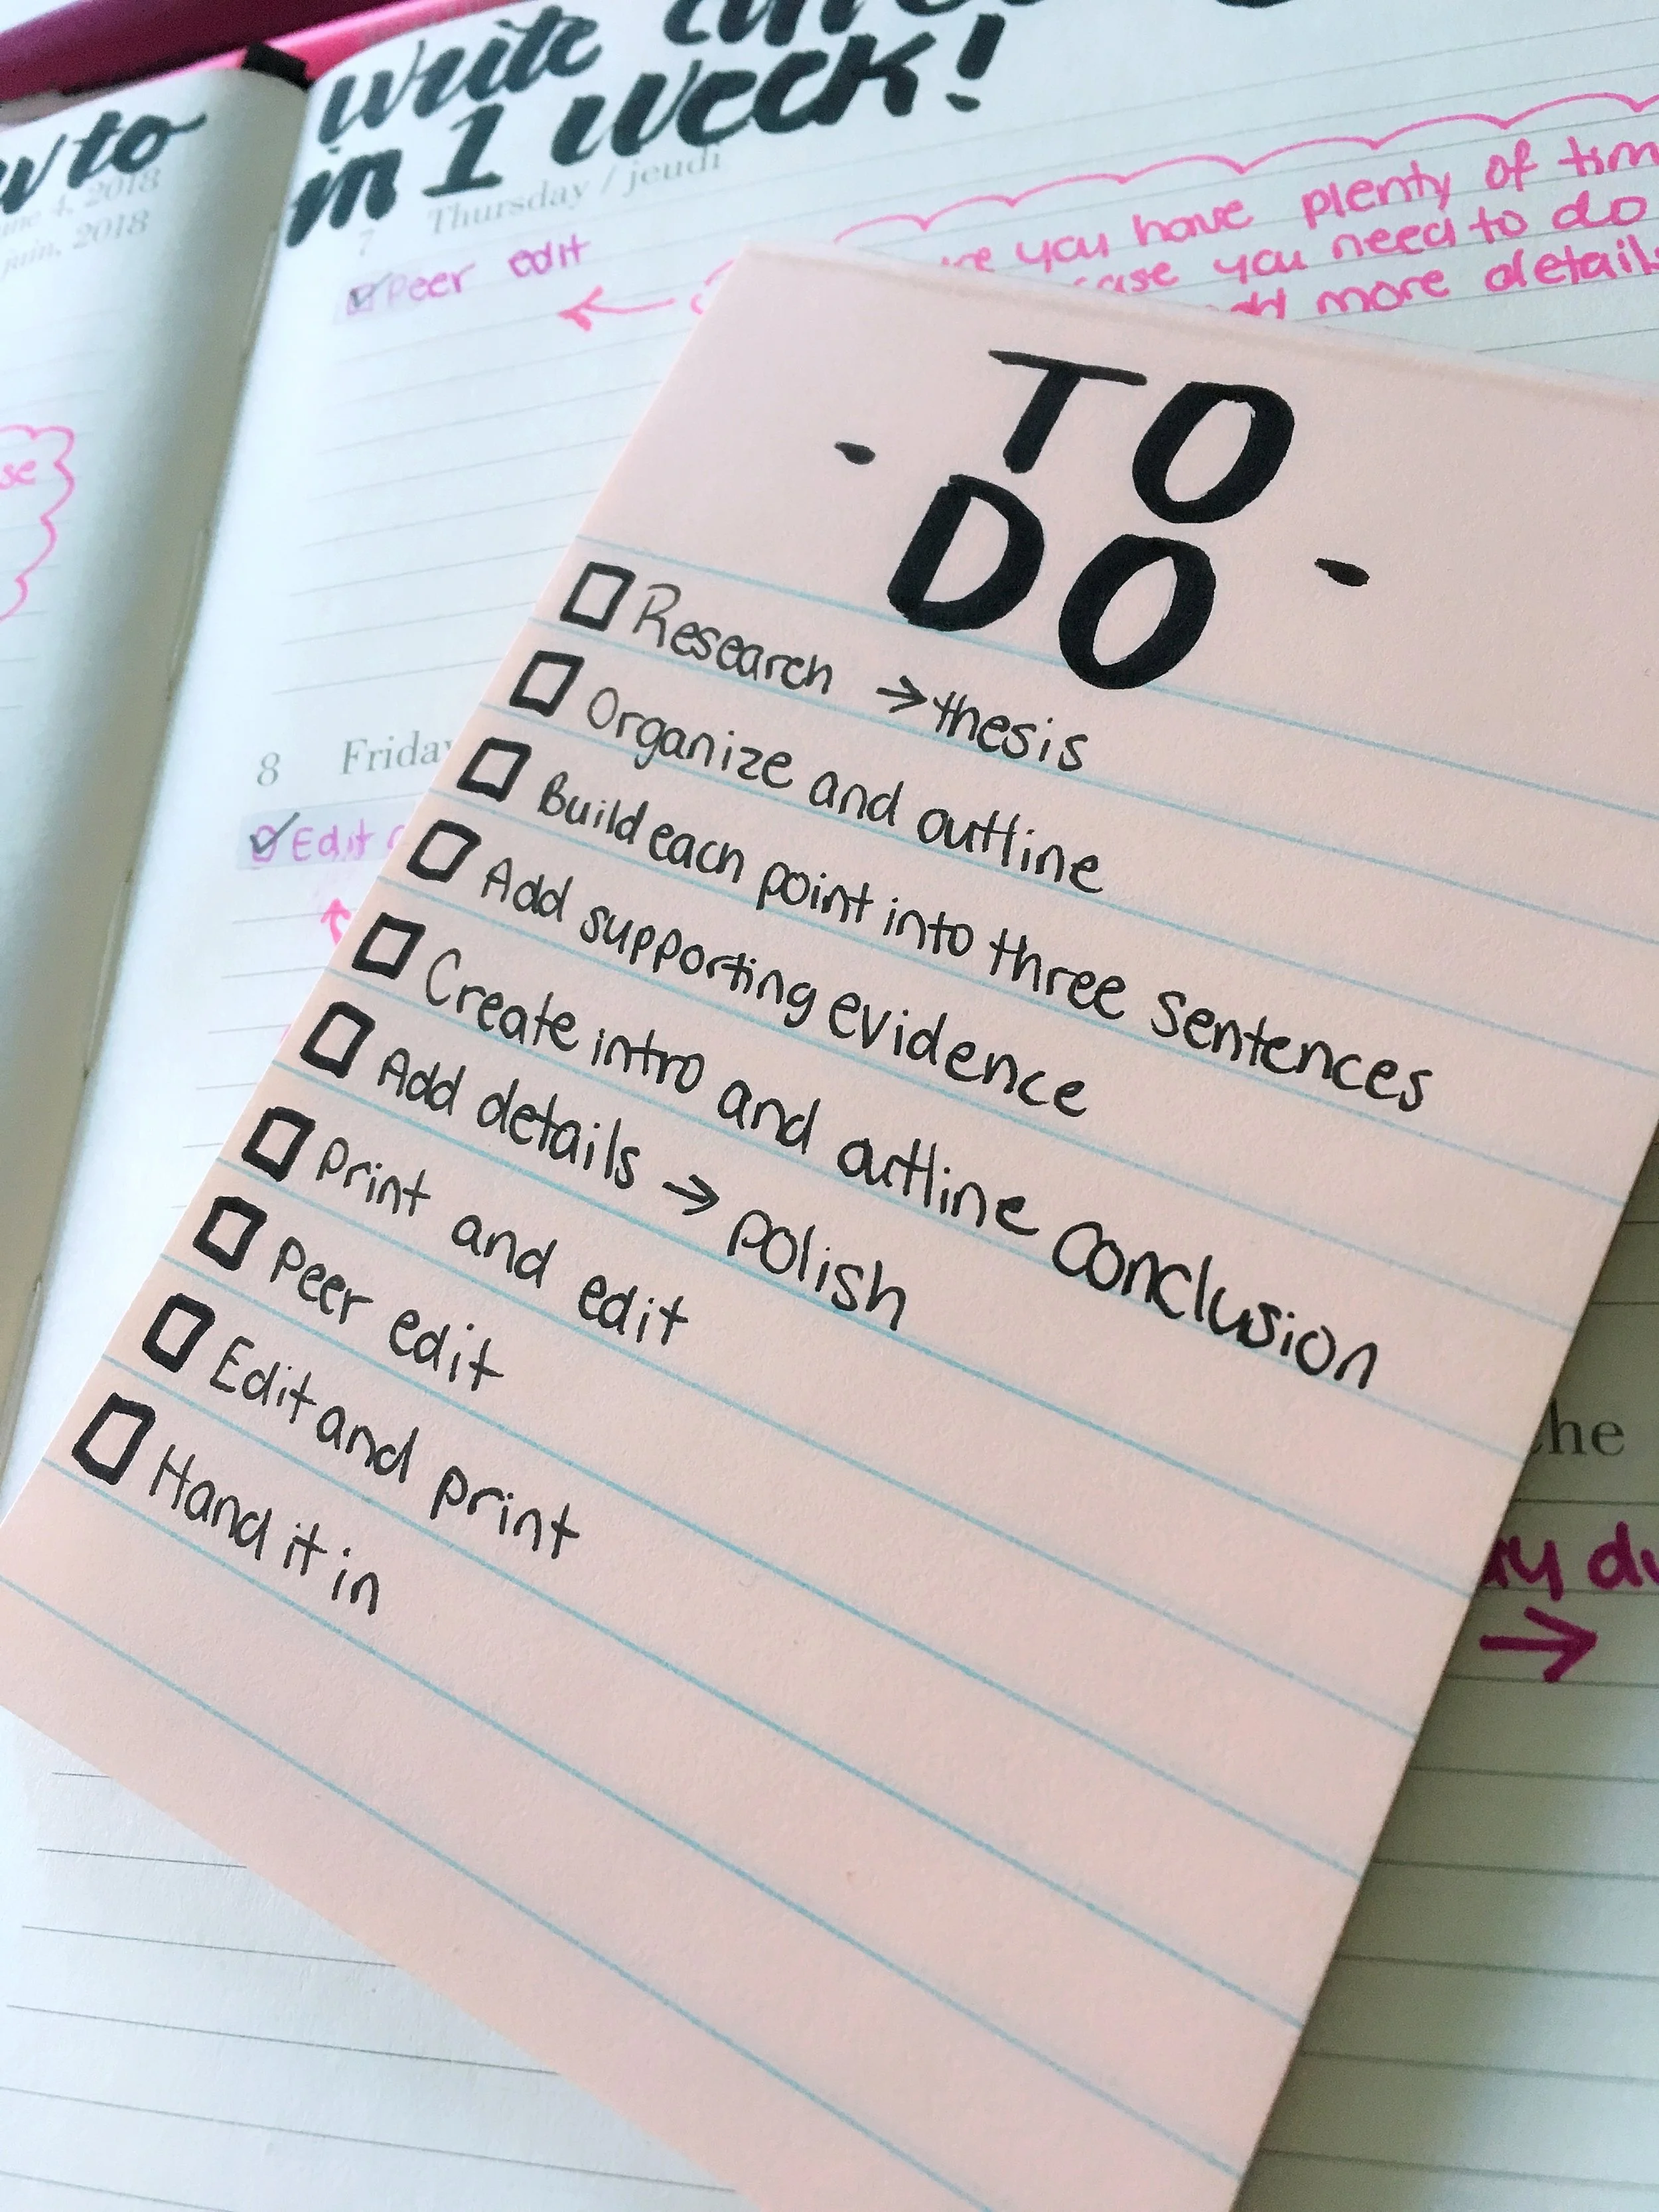 to
write
in 1 week!
June 4, 2018
juin, 2018
7 Thursday / jeudi
Peer edit
you have plenty of
you need to do
more details
se
8 Friday
Edit
TO
- DO -
Research → thesis
Organize and outline
Build each point into three sentences
Add supporting evidence
Create intro and outline conclusion
Add details → polish
Print and edit
Peer edit
Edit and print
Hand it in
he
→